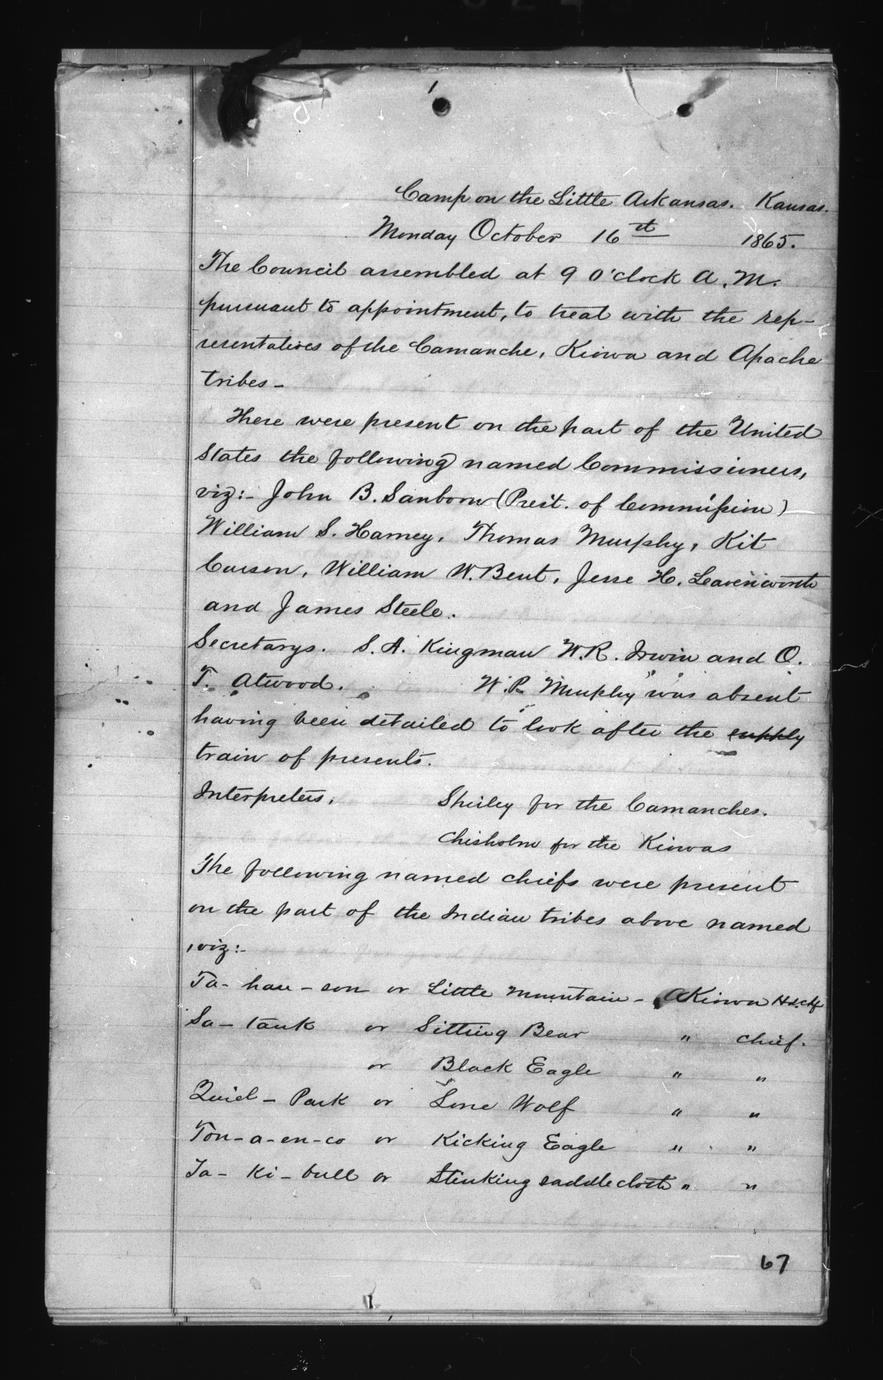 1
Camp on the Little Arkansas. Kansas.
Monday October 16th 1865.
The Council assembled at 9 O'clock A. M.
pursuant to appointment, to treat with the rep-
resentatives of the Camanche, Kiowa and Apache
tribes -
There were present on the part of the United
States the following named Commissioners,
viz:- John B. Sanborn (Prest. of Commission)
William S. Harney, Thomas Murphy, Kit
Carson, William W. Bent, Jesse H. Leavenworth
and James Steele.
Secretarys. S. A. Kingman W. R. Irwin and O.
T. Atwood. W. R. Murphy was absent
having been detailed to look after the supply
train of presents.
Interpreters, Shirley for the Camanches.
Chisholm for the Kiowas
The following named chiefs were present
on the part of the Indian tribes above named
, viz:-
Ta- hau - son or Little Mountain - A Kiowa Hd. chf
Sa - tank or Sitting Bear " chief.
or Black Eagle " "
Quiel - Park or Lone Wolf " "
Ton - a - en - co or Kicking Eagle " "
Ta - Ki - bull or Stinking saddle cloth " "
67
1